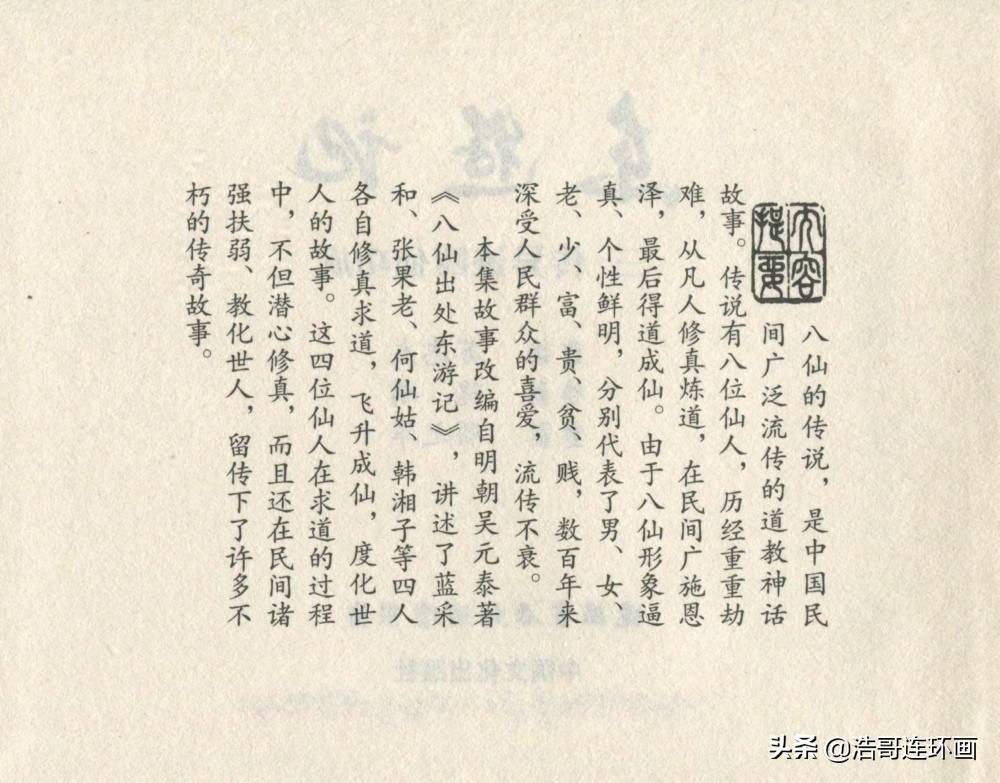 内容
提要
八仙的传说，是中国民
间广泛流传的道教神话
故事。传说有八位仙人，历经重重劫
难，从凡人修真炼道，在民间广施恩
泽，最后得道成仙。由于八仙形象逼
真、个性鲜明，分别代表了男、女、
老、少、富、贵、贫、贱，数百年来
深受人民群众的喜爱，流传不衰。
本集故事改编自明朝吴元泰著
《八仙出处东游记》，讲述了蓝采
和、张果老、何仙姑、韩湘子等四人
各自修真求道，飞升成仙，度化世
人的故事。这四位仙人在求道的过程
中，不但潜心修真，而且还在民间诸
强扶弱、教化世人，留传下了许多不
朽的传奇故事。
头条 @浩哥连环画